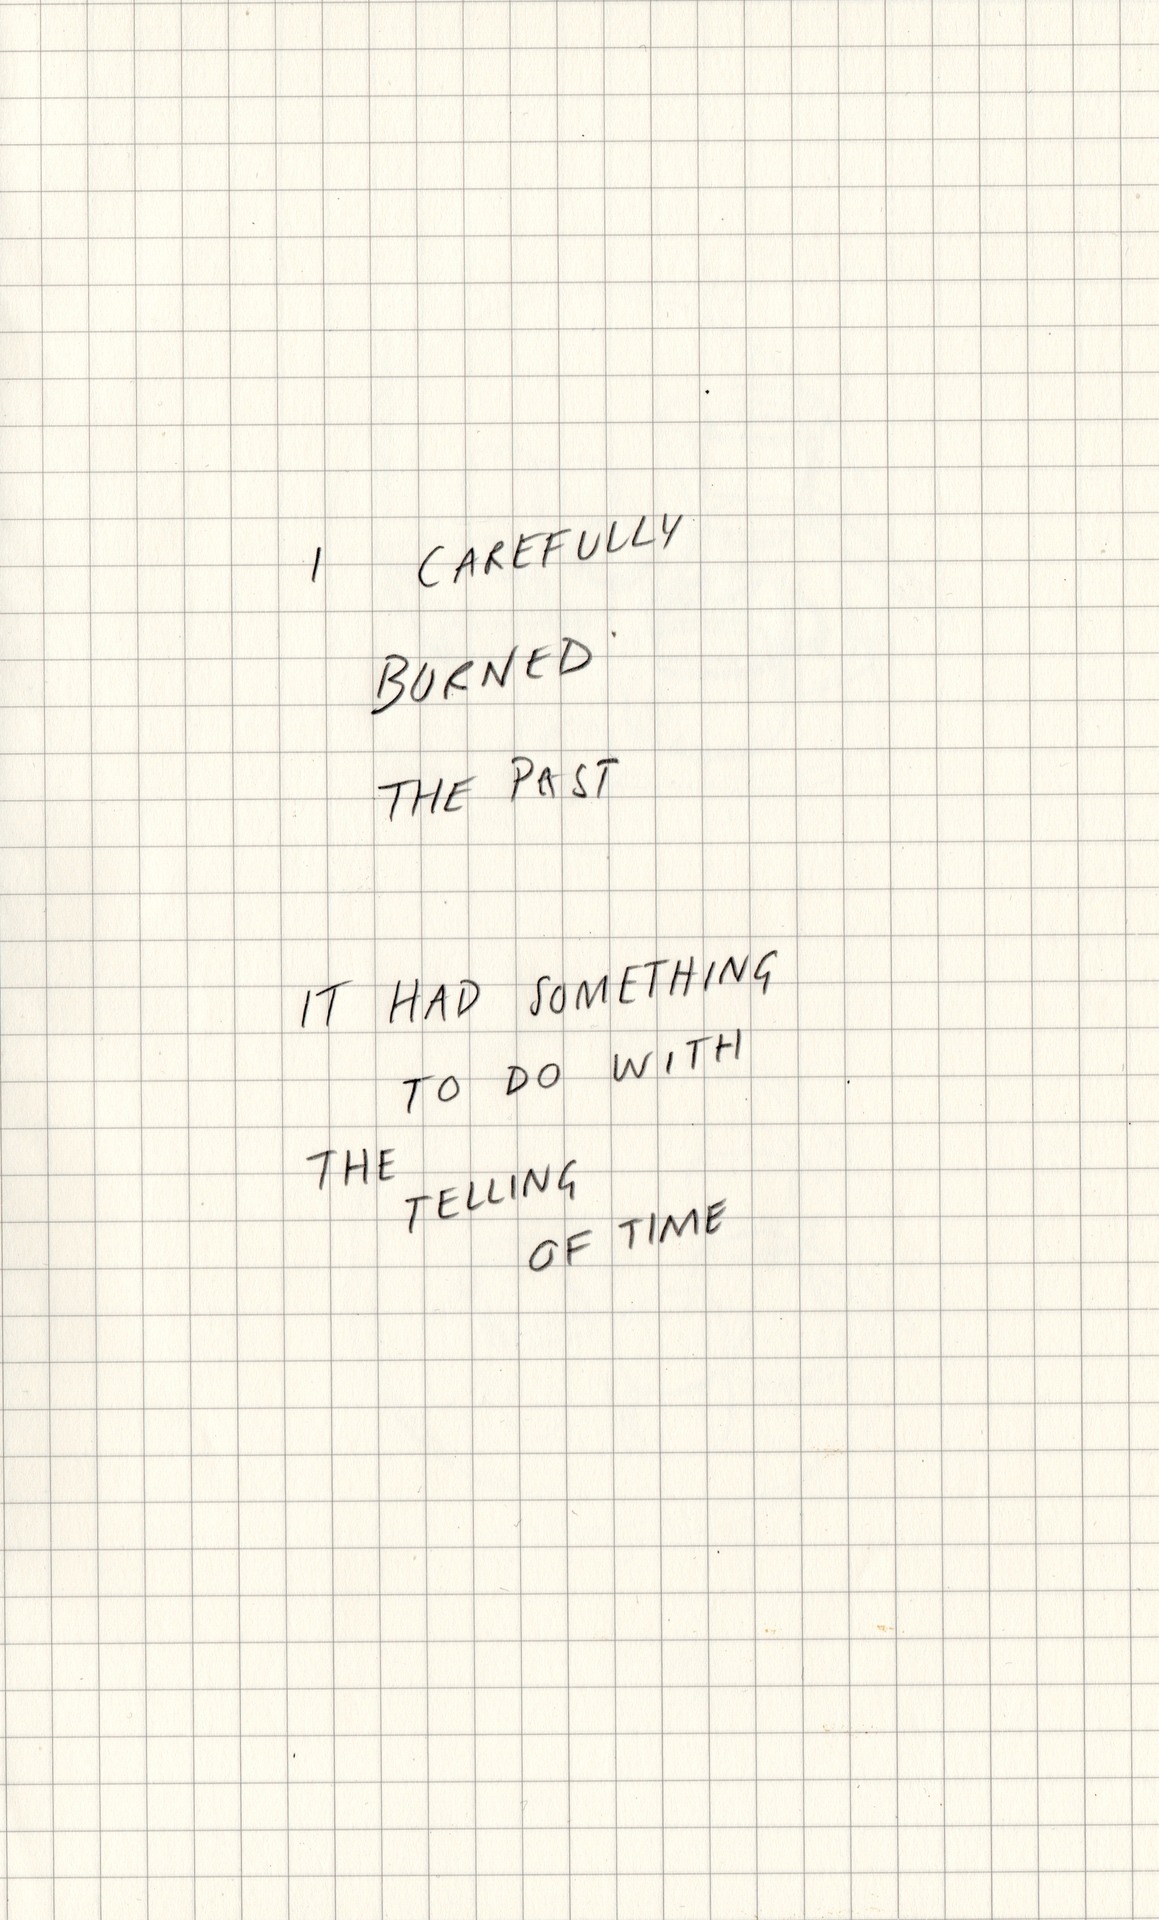 I CAREFULLY
BURNED
THE PAST
IT HAD SOMETHING
TO DO WITH
THE
TELLING
OF TIME